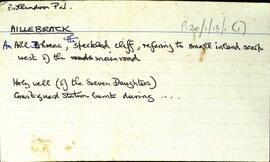 Ballindoon Psh.
P120/1/13/1 (1)
AILLEBRACK
An Aill Bhreac, the speckled cliff, referring to small inland scarp
west of the roads main road
Holy well (of the Seven Daughters)
Coastguard Station burnt during ....